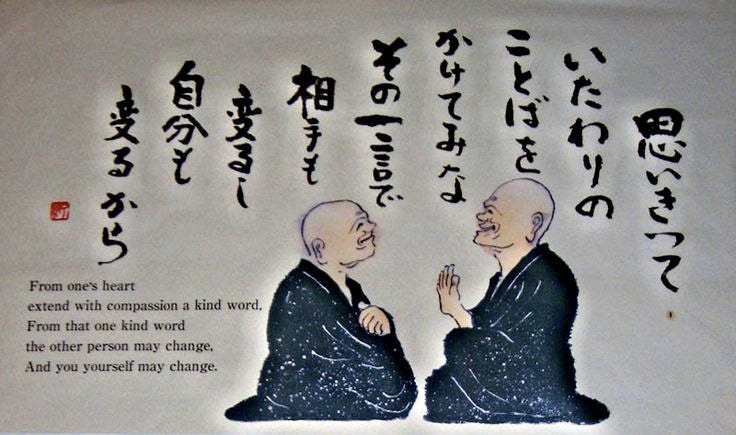 思いきって
いたわりの
ことばを
かけてみな
その一言で
相手も
変るし
自分も
変るから
From one's heart
extend with compassion a kind word.
From that one kind word
the other person may change,
And you yourself may change.